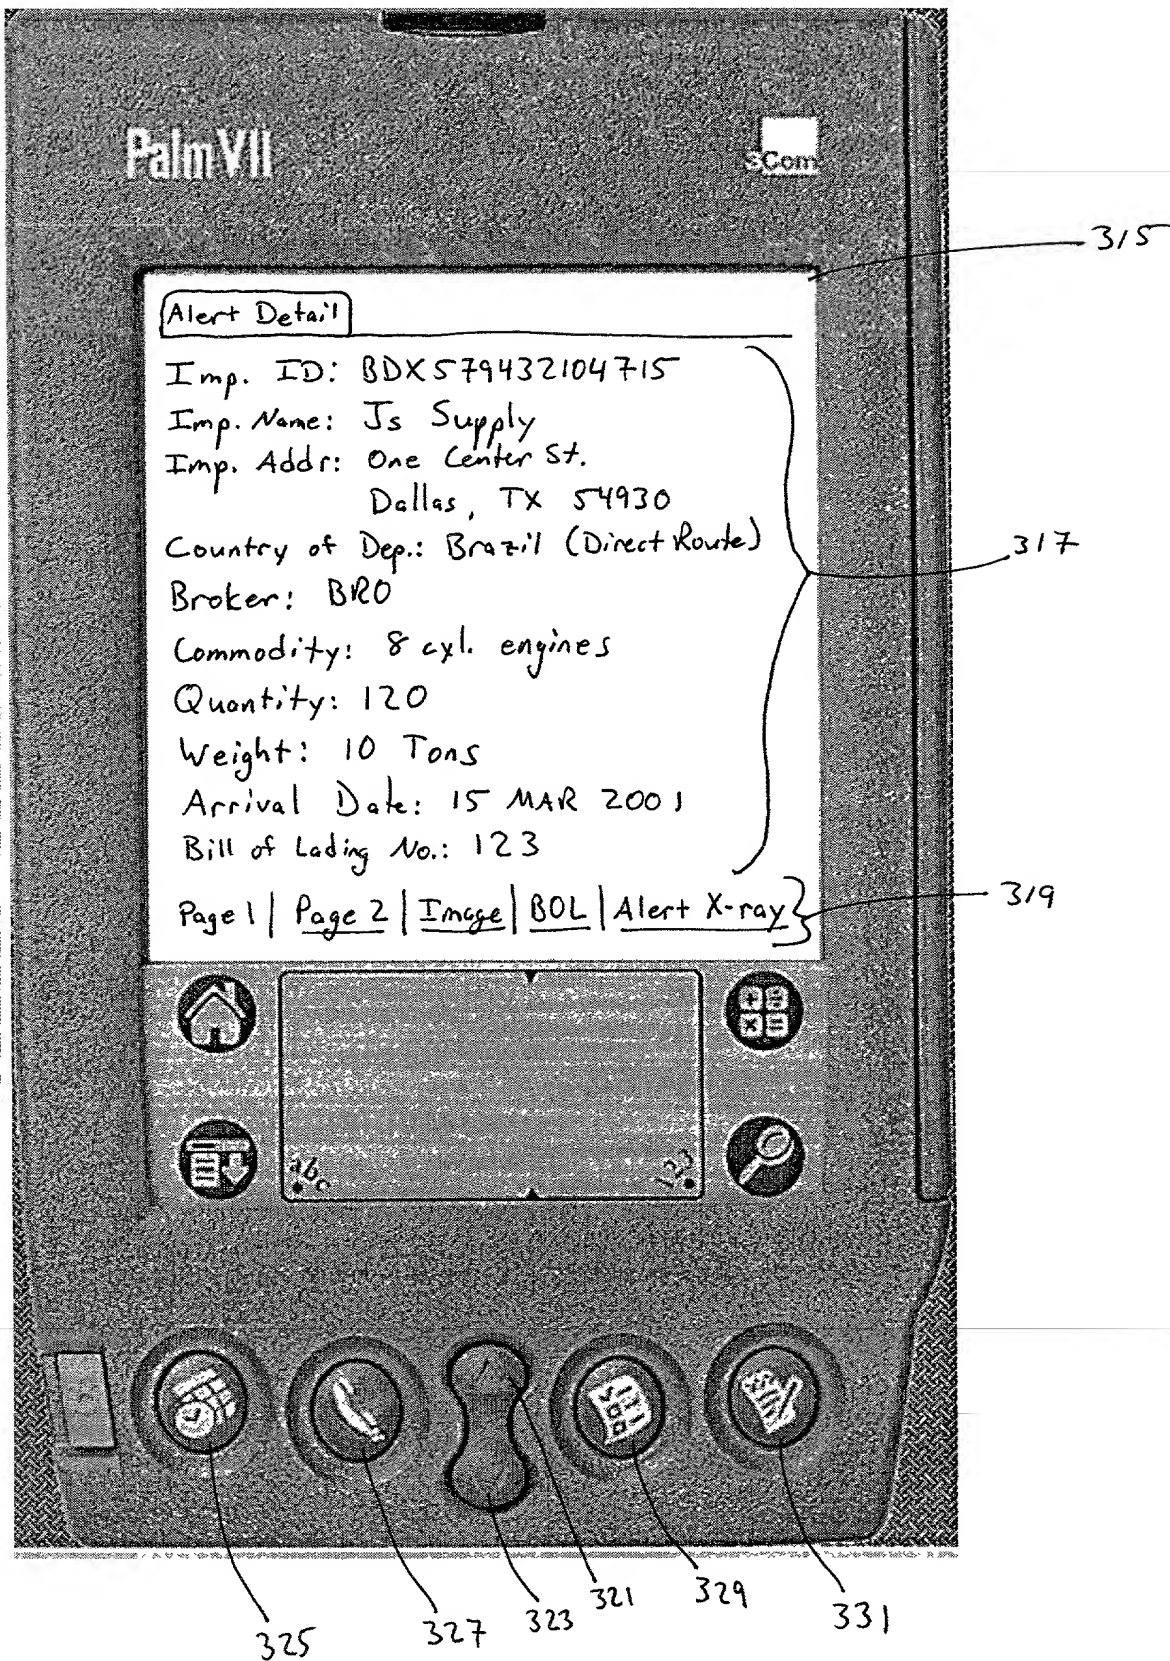 Palm VII
3Com
315
Alert Detail
Imp. ID: BDX579432104715
Imp. Name: Js Supply
Imp. Addr: One Center St.
Dallas, TX 54930
Country of Dep.: Brazil (Direct Route)
317
Broker: BRO
Commodity: 8 cyl. engines
Quantity: 120
Weight: 10 Tons
Arrival Date: 15 MAR 2001
Bill of Lading No.: 123
319
Page 1 | Page 2 | Image | BOL | Alert X-ray
abc 123
325 327 323 321 329 331